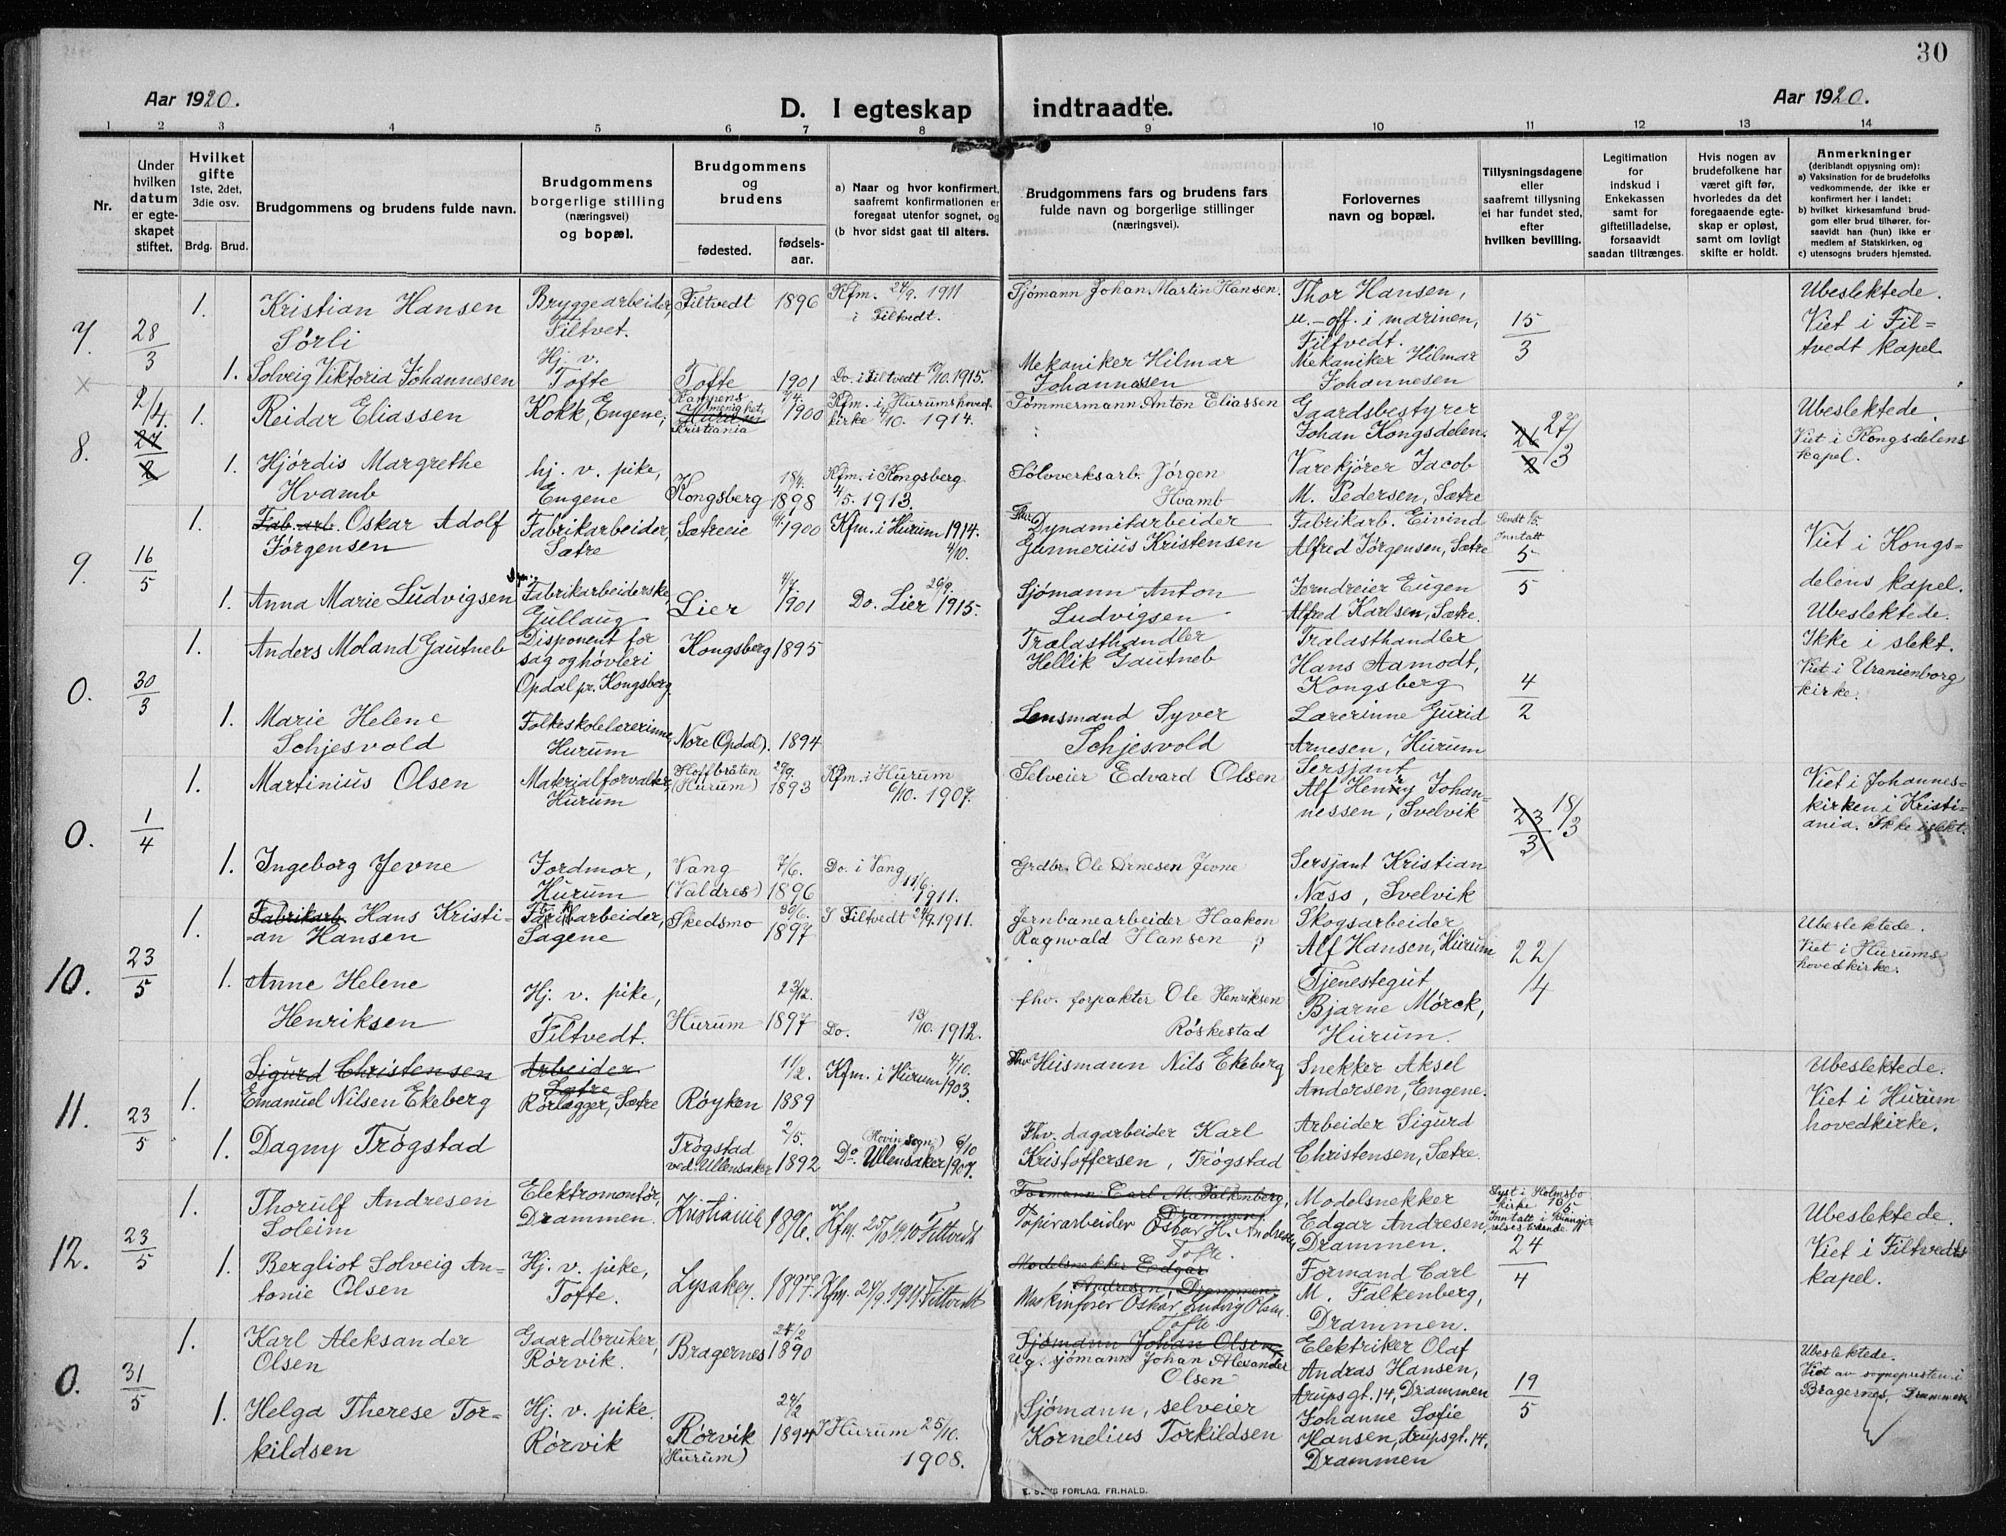 30
Aar 1920.
D. I egteskap indtraadte.
Aar 1920.
1 2 3 4 5 6 7 8 9 10 11 12 13 14
Nr.
Under hvilken datum er egteskapet stiftet.
Hvilket gifte
1ste, 2det, 3die osv.
Brdg. Brud.
Brudgommens og brudens fulde navn.
Brudgommens borgerlige stilling (næringsvei) og bopæl.
Brudgommens og brudens
fødested.
fødselsaar.
a) Naar og hvor konfirmert, saafremt konfirmationen er foregaat utenfor sognet, og
(b hvor sidst gaat til alters.
Brudgommens fars og brudens fars fulde navn og borgerlige stillinger (næringsvei).
Forlovernes navn og bopæl.
Tillysningsdagene eller saafremt tillysning ei har fundet sted, efter hvilken bevilling.
Legitimation for indskud i Enkekassen samt for giftetilladelse, forsaavidt saadan tiltrænges.
Hvis nogen av brudefolkene har været gift før, hvorledes da det foregaaende egteskap er opløst, samt om lovlig skifte er holdt.
Anmerkninger
(deriblandt opysning om):
a) Vaksination for de brudefolks vedkommende, der ikke er konfirmert her i landet;
b) hvilket kirkesamfund brudgom eller brud tilhører, forsaavidt han (hun) ikke er medlem af Statskirken, og
c) utensogns bruders hjemsted.
7. 28/3
1. Kristian Hansen Sørli
Bryggearbeider, Filtvet.
Filtvedt 1896
Kfm. 24/9. 1911 i Filtvedt.
Sjömann Johan Martin Hansen.
Thor Hansen, u.-off. i marinen, Filtvedt.
15/3
Ubeslektede. Viet i Filtvedt kapel
1. Solveig Viktoria Johannesen
Hj. v. Tofte
Tofte 1901
Do. i Filtvedt 10/10. 1915.
Mekaniker Hilmar Johannessen
Mekaniker Hilmar Johannesen
8. 2/4. 27/2
1. Reidar Eliassen
Kokk, Engene,
Kampens menighet, Kristiania
1900
Kfm. i Hurums hovedkirke 4/10. 1914.
Tømmermann Anton Eliassen
Gaardsbestyrer Johan Kongsdelen.
26/2 27/3
Ubeslektede. Viet i Kongsdelens kapel.
1. Hjördis Margrethe Hvamb
hj. v. pike, Engene
Kongsberg 18/4. 1898
Kfm. i Kongsberg 4/5. 1913.
Sölvverksarb. Jörgen Hvamb
Varekjører Jacob M. Pedersen, Sætre
9. 16/5
1. Fab. arb. Oskar Adolf Jørgensen
Fabrikarbeider, Sætre
Sætreeie 1900
Kfm. i Hurum 1914. 4/10.
Dynamitarbeider Gunnerius Kristensen
Fabrikarb. Eivind Alfred Jørgensen, Sætre
5/5
Viet i Kongsdelens kapel. Ubeslektede.
1. Anna Marie Ludvigsen
Fabrikarbeiderske, Gullaug
Lier 4/7 1901
Do. Lier 26/9. 1915.
Sjømann Anton Ludvigsen
Jerndreier Eugen Alfred Karlsen, Sætre.
0. 30/3
1. Anders Moland Gautneb
Disponent for sag og høvleri Opdal pr. Kongsberg
Kongsberg 1895
Trælasthandler Hellik Gautneb
Trælasthandler Hans Aamodt, Kongsberg
4/2
Ikke i slekt. Viet i Uranienborg kirke.
1. Marie Helene Schjesvold
Folkeskolelærerinne, Hurum
Nore (Opdal). 1894
Lensmand Syver Schjesvold
Lærerinne Gurid Arnesen, Hurum
0. 1/4
1. Martinius Olsen
Materialforvalter, Hurum
Hoffbråten (Hurum) 29/9. 1893
Kfm. i Hurum 6/10. 1907.
Selveier Edvard Olsen
Sersjant Alf Henry Johannessen, Svelvik
23/3 18/3
Viet i Johanneskirken i Kristiania. Ikke i slekt.
1. Ingeborg Jevne
Jordmor, Hurum
Vang (Valdres) 7/6. 1896
Do. i Vang 11/6. 1911.
Grdbr. Ole Arnesen Jevne
Sersjant Kristian Næss, Svelvik
10. 23/5
1. Fabrikarb. Hans Kristian Hansen
Fabrikarbeider, Sagene
Skedsmo 30/6. 1897
I Filtvedt 24/9. 1911.
Jernbanearbeider Haakon Ragnvald Hansen
Skogsarbeider Alf Hansen, Hurum
22/4
Ubeslektede. Viet i Hurums hovedkirke.
1. Anne Helene Henriksen
Hj. v. pike, Filtvedt.
Hurum 23/12. 1897
Do. 13/10. 1912.
fhv. forpakter Ole Henriksen Röskestad
Tjenestegut Bjarne Mørck, Hurum.
11. 23/5
Sigurd Christensen
1. Emanuel Nilsen Ekeberg
Arbeider Sætre
Rørlægger, Sætre
Røyken 11/2. 1889
Kfm. i Hurum 4/10. 1903.
Fhv. Husmann Nils Ekeberg
Snekker Aksel Andersen, Engene.
Ubeslektede. Viet i Hurum hovedkirke.
1. Dagny Trøgstad
Trøgstad ved Ullensaker 2/5. 1892
Do. Ullensaker (Hovin sogn) 6/10 1907.
Fhv. dagarbeider Karl Kristoffersen, Trøgstad
Arbeider Sigurd Christensen, Sætre.
12. 23/5
1. Thorulf Andresen Soleim
Elektromontör, Drammen.
Kristiania 1896.
Kfm. 25/10 1910 Filtvedt
Formann Carl M. Falkenberg, Drammen
Papirarbeider Oskar H. Andresen, Tofte.
Modelsnekker Edgar Andresen, Drammen.
Lyst i Holmsbo kirke
24/4
Ubeslektede. Viet i Filtvedts kapel.
1. Bergliot Solveig Antonie Olsen
Hj. v. pike, Tofte.
Lysaker 1897.
Kfm. 24/9. 1911 Filtvedt
Modelsnekker Edgar Andresen, Drammen
Maskinfører Oskar Ludvig Olsen. Tofte
Formand Carl M. Falkenberg, Drammen.
0. 31/5
1. Karl Aleksander Olsen
Gaardbruker, Rørvik.
Bragernes 24/2 1890
Sjømann Johan Olsen
ug. sjömann Johan Alexander Olsen
Elektriker Olaf Andras Hansen, Arupsgt. 14, Drammen
19/5
Ubeslektede. Viet av sognepresten i Bragernes, Drammen
1. Helga Therese Torkildsen
Hj. v. pike. Rørvik
Rørvik (Hurum) 24/2 1894
I Hurum 25/10. 1908.
Sjømann, selveier Kornelius Torkildsen
Johanne Sofie Hansen, Arupsgt. 14, Drammen
FORLAG. FR.HALD.